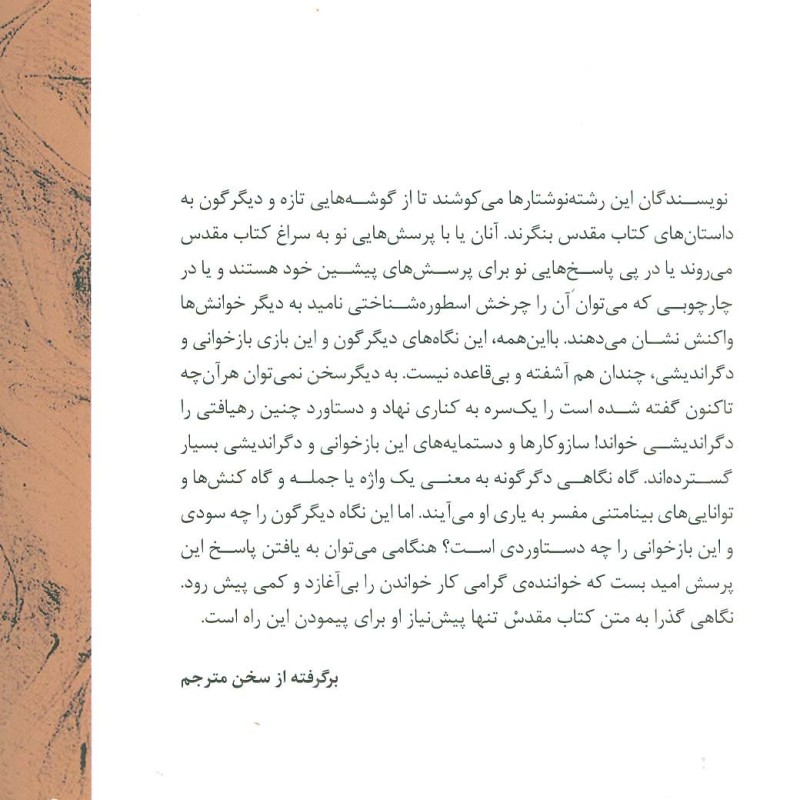 نویسندگان این رشته‌نوشتارها می‌کوشند تا از گوشه‌هایی تازه و دیگرگون به
داستان‌های کتاب مقدس بنگرند. آنان یا با پرسش‌هایی نو به سراغ کتاب مقدس
می‌روند یا در پی پاسخ‌هایی نو برای پرسش‌های پیشین خود هستند و یا در
چارچوبی که می‌توان آن را چرخش اسطوره‌شناختی نامید به دیگر خوانش‌ها
واکنش نشان می‌دهند. بااین‌همه، این نگاه‌های دیگرگون و این بازی بازخوانی و
دگراندیشی، چندان هم آشفته و بی‌قاعده نیست. به دیگرسخن نمی‌توان هرآن‌چه
تاکنون گفته شده است را یک‌سره به کناری نهاد و دستاورد چنین رهیافتی را
دگراندیشی خواند! سازوکارها و دستمایه‌های این بازخوانی و دگراندیشی بسیار
گسترده‌اند. گاه نگاهی دگرگونه به معنی یک واژه یا جمله و گاه کنش‌ها و
توانایی‌های بینامتنی مفسر به یاری او می‌آیند. اما این نگاه دیگرگون را چه سودی
و این بازخوانی را چه دستاوردی است؟ هنگامی می‌توان به یافتن پاسخ این
پرسش امید بست که خواننده‌ی گرامی کار خواندن را بی‌آغازد و کمی پیش رود.
نگاهی گذرا به متن کتاب مقدسْ تنها پیش‌نیاز او برای پیمودن این راه است.
برگرفته از سخن مترجم